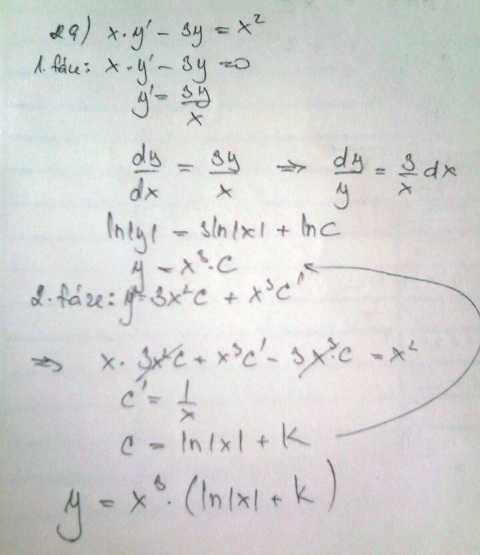 29) x·y' − 3y = x²
1. fáze: x·y' − 3y = 0
y' = 3y/x
dy/dx = 3y/x ⇒ dy/y = 3/x dx
ln|y| = 3ln|x| + lnC
y = x³·C
2. fáze: y' = 3x²C + x³C'
⇒ x·3x²C + x³C' − 3x³·C = x²
C' = 1/x
C = ln|x| + K
y = x³·(ln|x| + K)